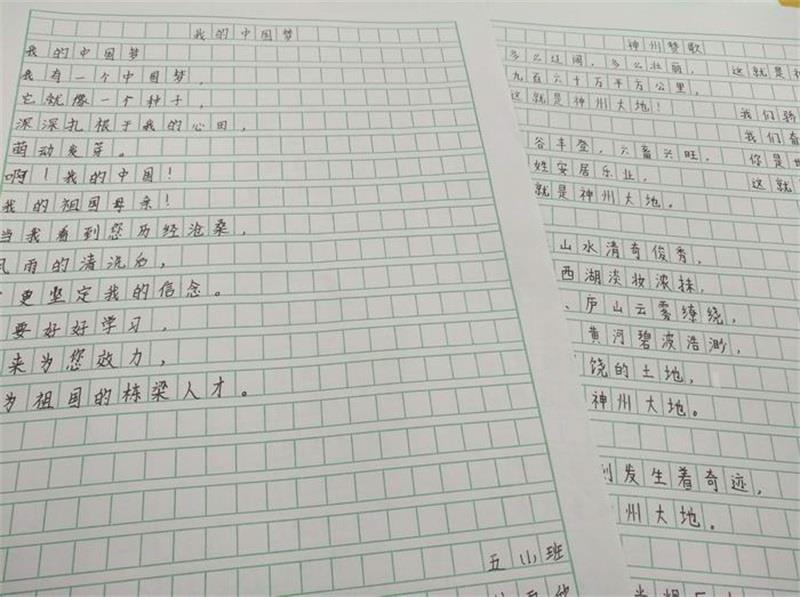 我的中国梦
我的中国梦
我有一个中国梦，
它就像一个种子，
深深扎根于我的心田，
萌动发芽。
啊！我的中国！
我的祖国母亲！
当我看到您历经沧桑，
风雨的清洗后，
更坚定我的信念。
要好好学习，
来为您效力，
为祖国的栋梁人才。
五(1)班
神州赞歌
多么辽阔，多么壮丽， 这就是神
九百六十万平方公里，
这就是神州大地！ 我们骄
我们奋
谷丰登，六畜兴旺， 你是世
姓安居乐业， 这就
就是神州大地。
山水清奇俊秀，
西湖淡妆浓抹，
、庐山云雾缭绕，
黄河碧波浩渺，
饶的土地，
神州大地。
刻发生着奇迹，
州大地。